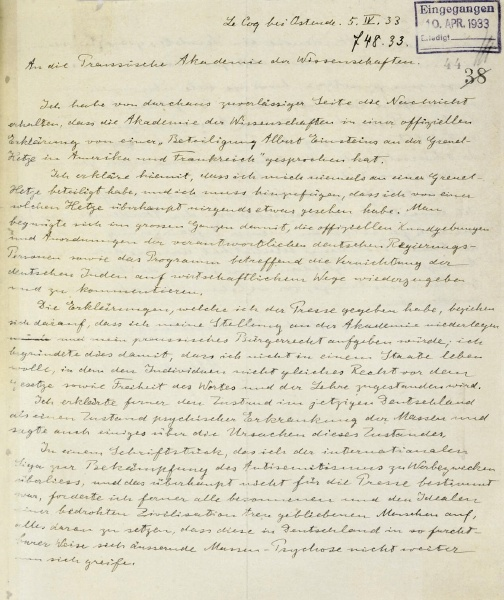 Le Coq bei Ostende. 5. IV. 33
Eingegangen
10. APR. 1933
Erledigt
748. 33.
44
38
An die Preussische Akademie der Wissenschaften.
Ich habe von durchaus zuverlässiger Seite die Nachricht
erhalten, dass die Akademie der Wissenschaften in einer offiziellen
Erklärung von einer „Beteiligung Albert Einsteins an der Greuel-
Hetze in Amerika und Frankreich" gesprochen hat.
Ich erkläre hiemit, dass ich mich niemals an einer Greuel-
Hetze beteiligt habe, und ich muss hinzufügen, dass ich von einer
solchen Hetze überhaupt nirgends etwas gesehen habe. Man
begnügte sich im grossen Ganzen damit, die offiziellen Kundgebungen
und Anordnungen der verantwortlichen deutschen Regierungs-
Personen sowie das Programm betreffend die Vernichtung der
deutschen Juden auf wirtschaftlichem Wege wiederzugeben
und zu kommentieren.
Die Erklärungen, welche ich der Presse gegeben habe, beziehen
sich darauf, dass ich meine Stellung an der Akademie niederlegen
und mein preussisches Bürgerrecht aufgeben würde; ich
begründete dies damit, dass ich nicht in einem Staate leben
wolle, in dem den Individuen nicht gleiches Recht vor dem
Gesetze sowie Freiheit des Wortes und der Lehre zugestanden wird.
Ich erklärte ferner den Zustand im jetzigen Deutschland
als einen Zustand psychischer Erkrankung der Massen und
sagte auch einiges über die Ursachen dieses Zustandes.
In einem Schriftstück, das ich der internationalen
Liga zur Bekämpfung des Antisemitismus zu Werbezwecken
überliess, und das überhaupt nicht für die Presse bestimmt
war, forderte ich ferner alle besonnenen und den Idealen
einer bedrohten Zivilisation treu gebliebenen Menschen auf,
alles daran zu setzen, dass diese in Deutschland in so furcht-
barer Weise sich äussernde Massen-Psychose nicht weiter
um sich greife.